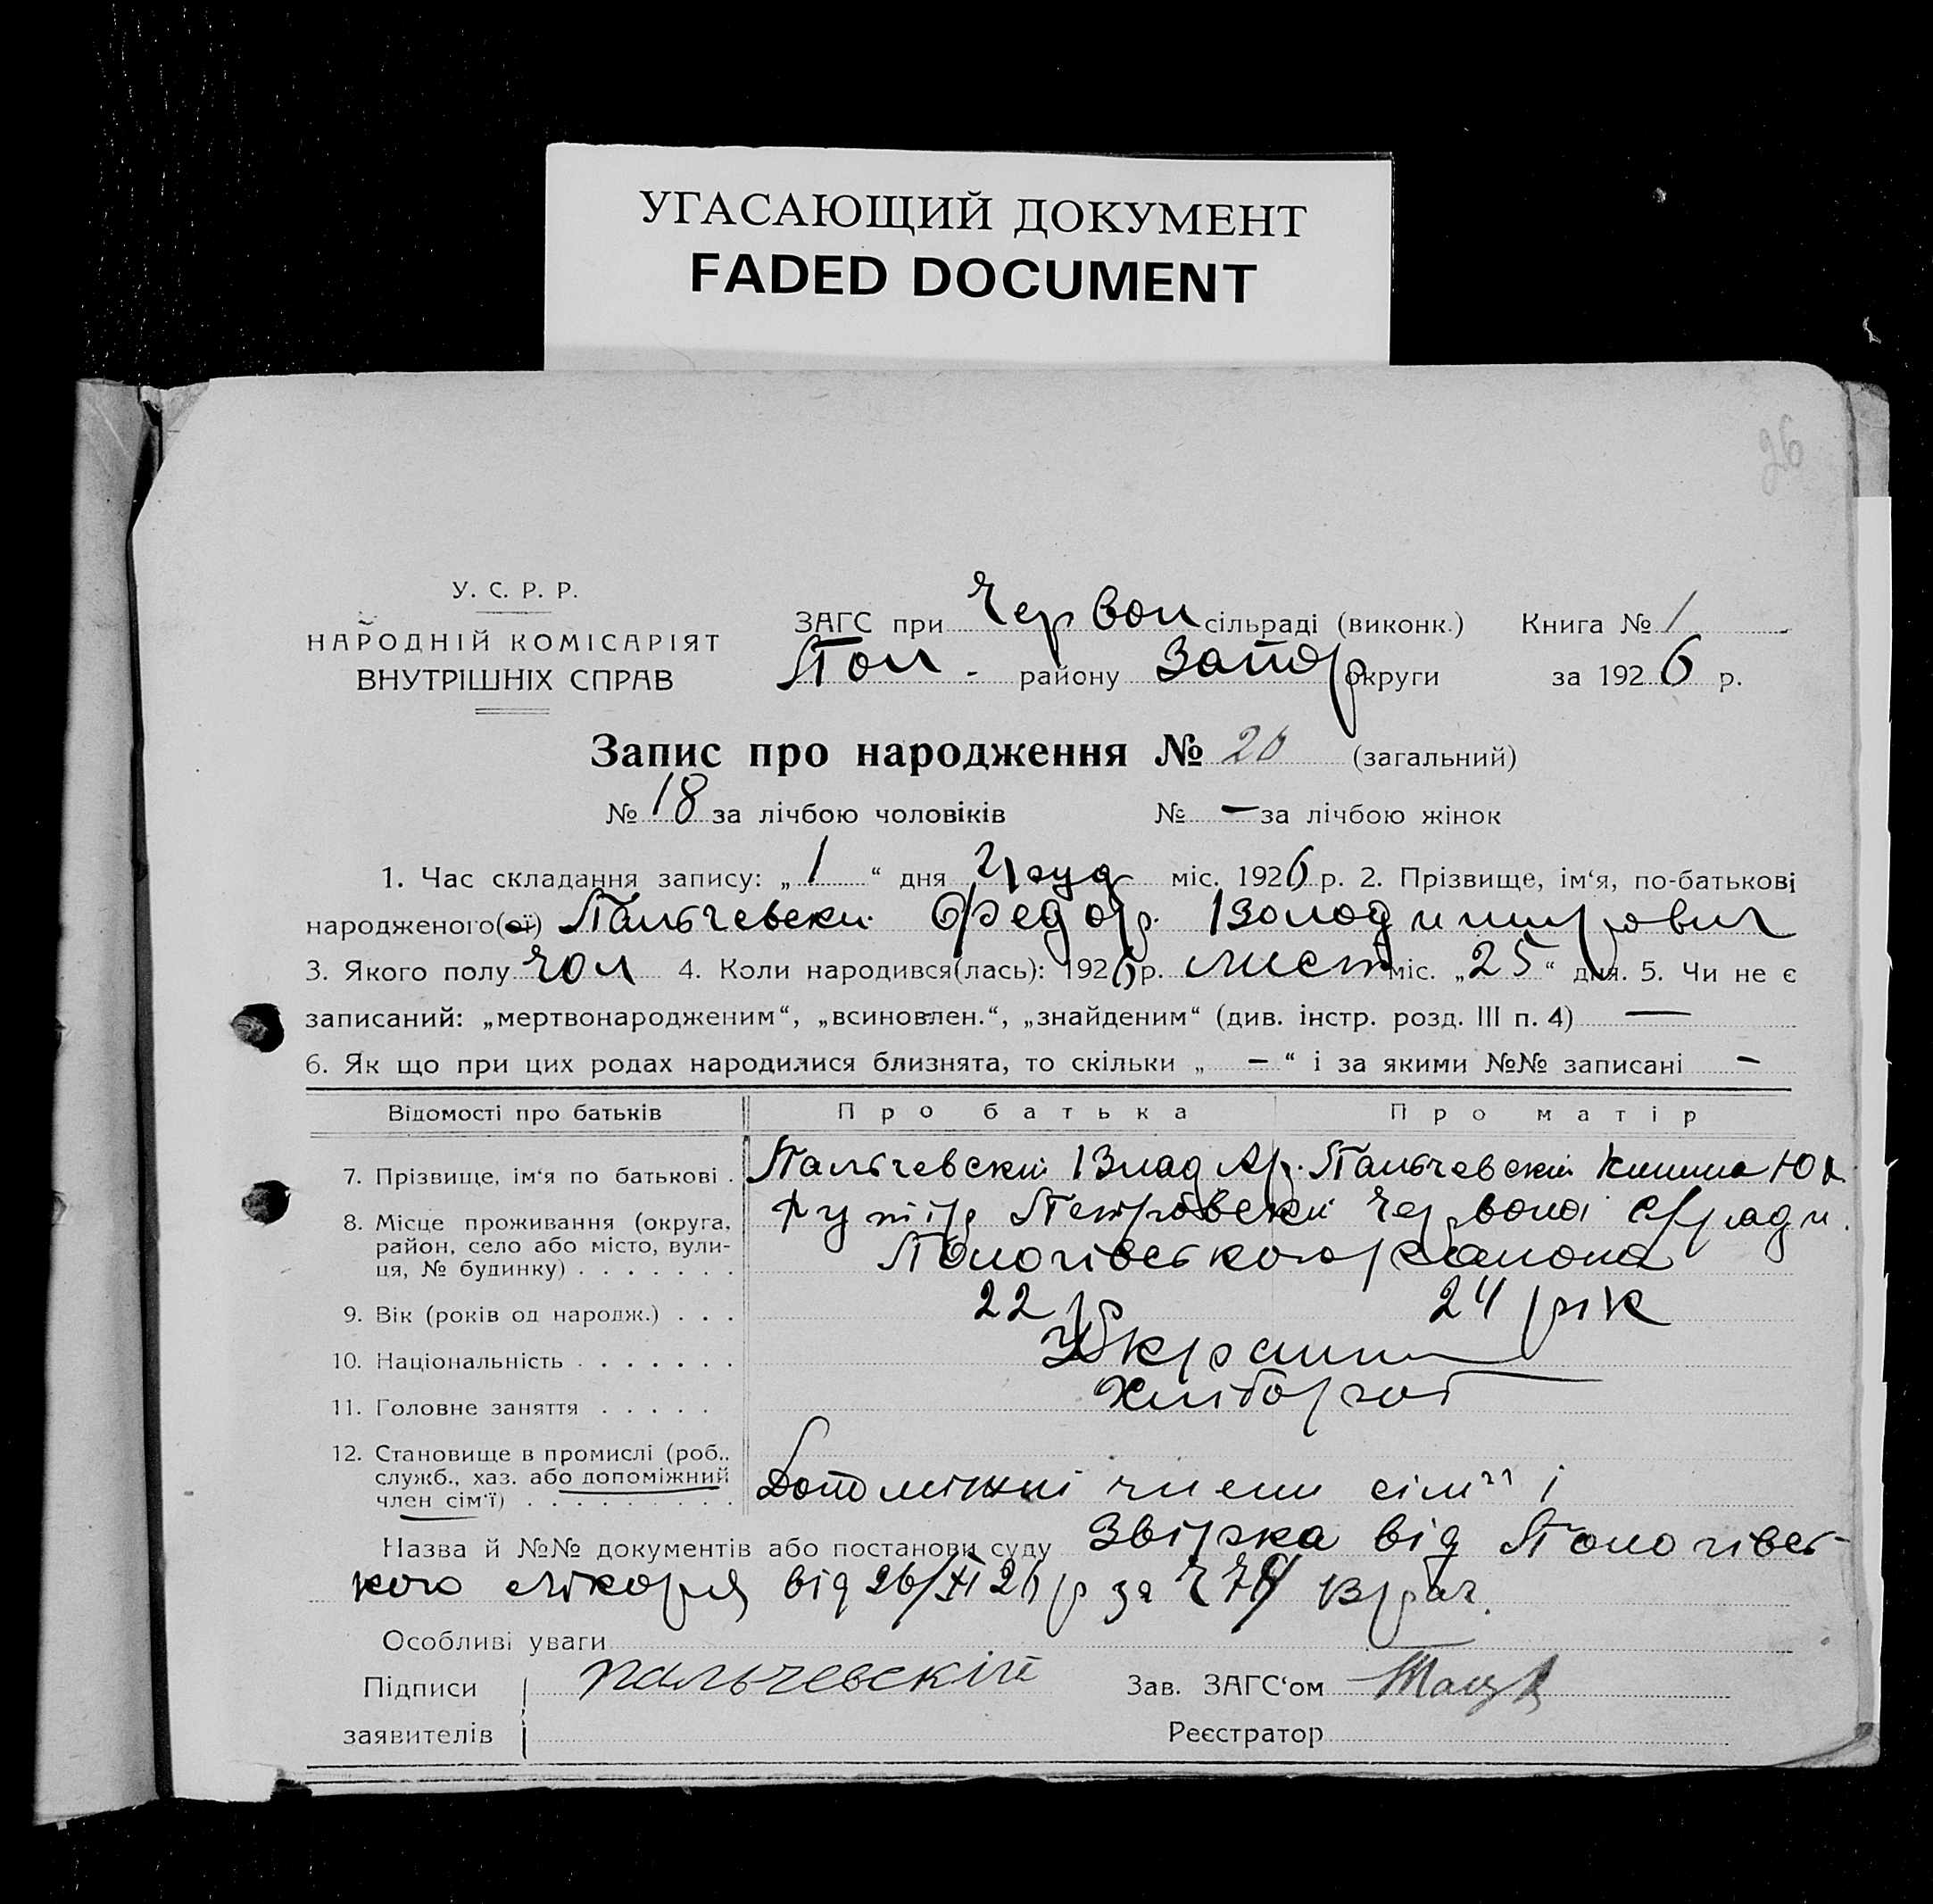 УГАСАЮЩИЙ ДОКУМЕНТ
FADED DOCUMENT
26
У. С. Р. Р.
НАРОДНІЙ КОМІСАРІЯТ
ВНУТРІШНІХ СПРАВ
ЗАГС при Червон сільраді (виконк.) Книга № 1
Пол - району Запор округи за 1926 р.
Запис про народження № 20 (загальний)
№ 18 за лічбою чоловіків № — за лічбою жінок
1. Час складання запису: „ 1 “ дня Груд міс. 1926 р. 2. Прізвище, ім‘я, по-батькові
народженого(ої) Пальчевски Федор Володимирович
3. Якого полу чол 4. Коли народився(лась): 1926 р. лист міс. „ 25 “ дня. 5. Чи не є
записаний: „мертвонародженим“, „всиновлен.“, „знайденим“ (див. інстр. розд. III п. 4) —
6. Як що при цих родах народилися близнята, то скільки „ — “ і за якими №№ записані —
Відомості про батьків Про батька Про матір
7. Прізвище, ім‘я по батькові . Пальчевский Влад Ар. Пальчевский
8. Місце проживання (округа, район, село або місто, вулиця, № будинку) . . . . . . . хутір Петровски Червоної с/ради.
Пологівського района
9. Вік (років од народж.) . . . 22 р 24 рік
10. Національність . . . . . . . Украин
11. Головне заняття . . . . . Хлібороб
12. Становище в промислі (роб., служб., хаз. або допоміжний член сім‘ї) . . . . . . . . . Допоміжні члени сім"і
Назва й №№ документів або постанови суду Звірка від Пологівсь-
кого лікоря від 26/XI 26 р за Врач.
Особливі уваги
Підписи Пальчевскій Зав. ЗАГС‘ом
заявителів Реєстратор